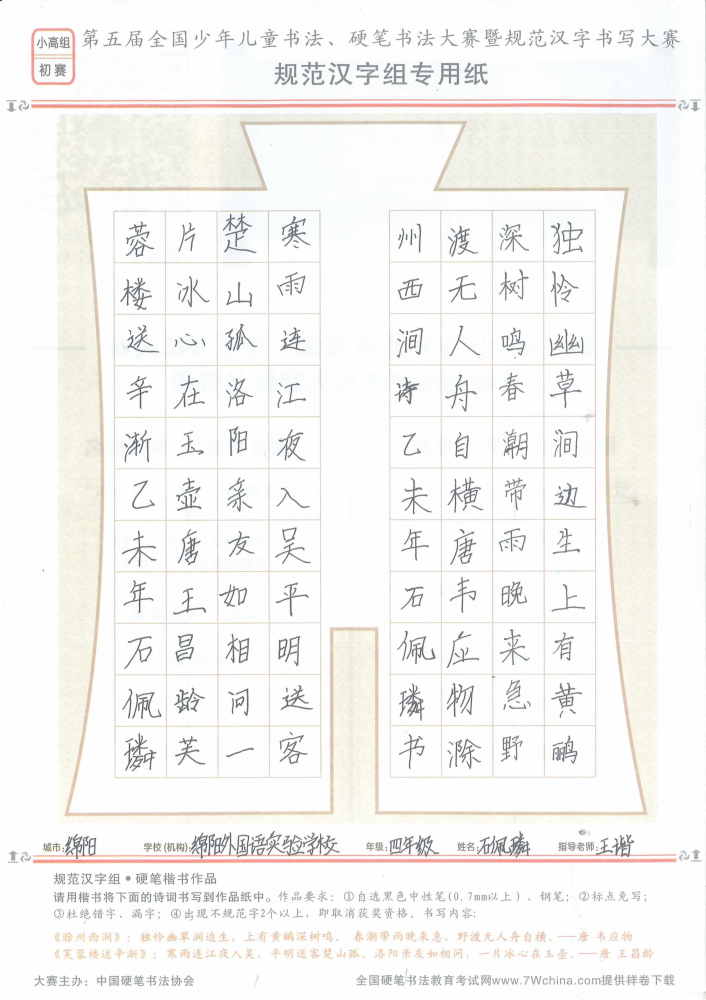 小高组
初赛
第五届全国少年儿童书法、硬笔书法大赛暨规范汉字书写大赛
规范汉字组专用纸
独怜幽草涧边生上有黄鹂
深树鸣春潮带雨晚来急野
渡无人舟自横唐韦应物滁
州西涧诗乙未年石佩璘书
寒雨连江夜入吴平明送客
楚山孤洛阳亲友如相问一
片冰心在玉壶唐王昌龄芙
蓉楼送辛渐乙未年石佩璘
城市：绵阳 学校(机构)：绵阳外国语实验学校 年级：四年级 姓名：石佩璘 指导老师：王谐
规范汉字组●硬笔楷书作品
请用楷书将下面的诗词书写到作品纸中。作品要求：①自选黑色中性笔(0.7mm以上)、钢笔；②标点免写；
③杜绝错字、漏字；④出现不规范字2个以上，即取消获奖资格。书写内容：
《滁州西涧》：独怜幽草涧边生，上有黄鹂深树鸣。春潮带雨晚来急，野渡无人舟自横。——唐 韦应物
《芙蓉楼送辛渐》：寒雨连江夜入吴，平明送客楚山孤。洛阳亲友如相问，一片冰心在玉壶。——唐 王昌龄
大赛主办：中国硬笔书法协会 全国硬笔书法教育考试网www.7Wchina.com提供样卷下载